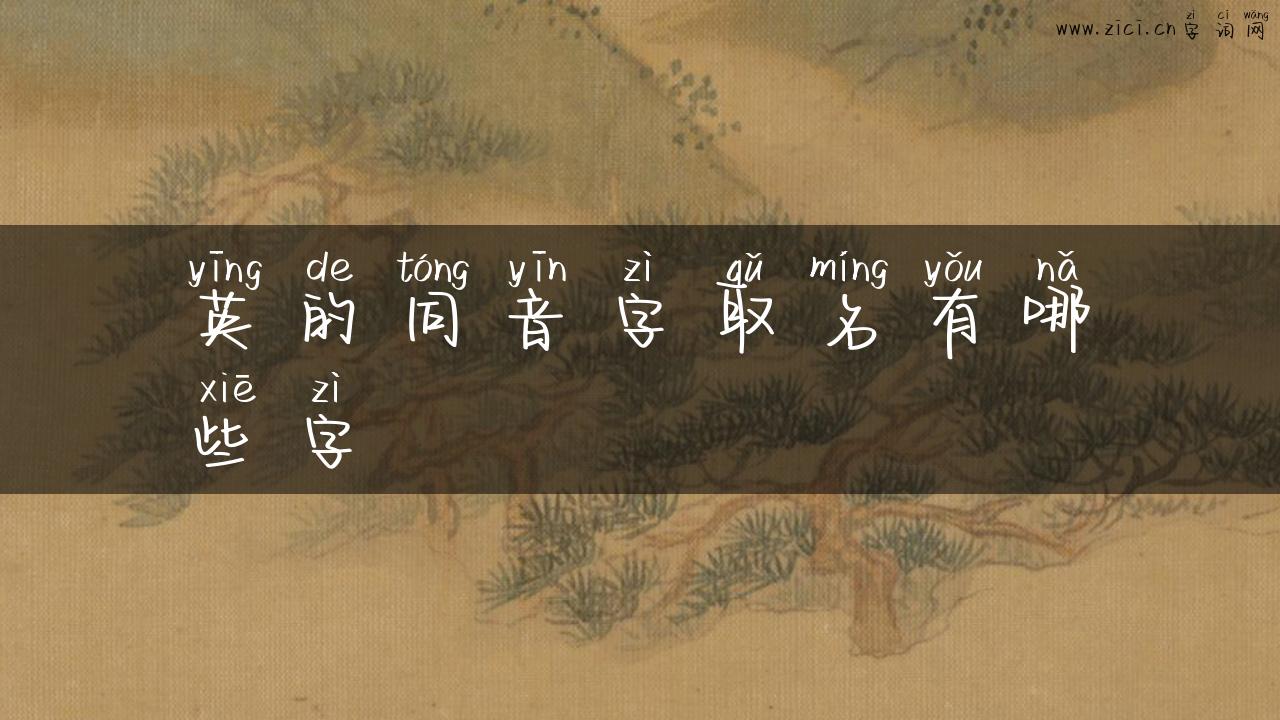 www.zīcī.cn zì cí wǎng
字词网
yīng de tóng yīn zì qǔ míng yǒu nǎ
英的同音字取名有哪
xiē zì
些字